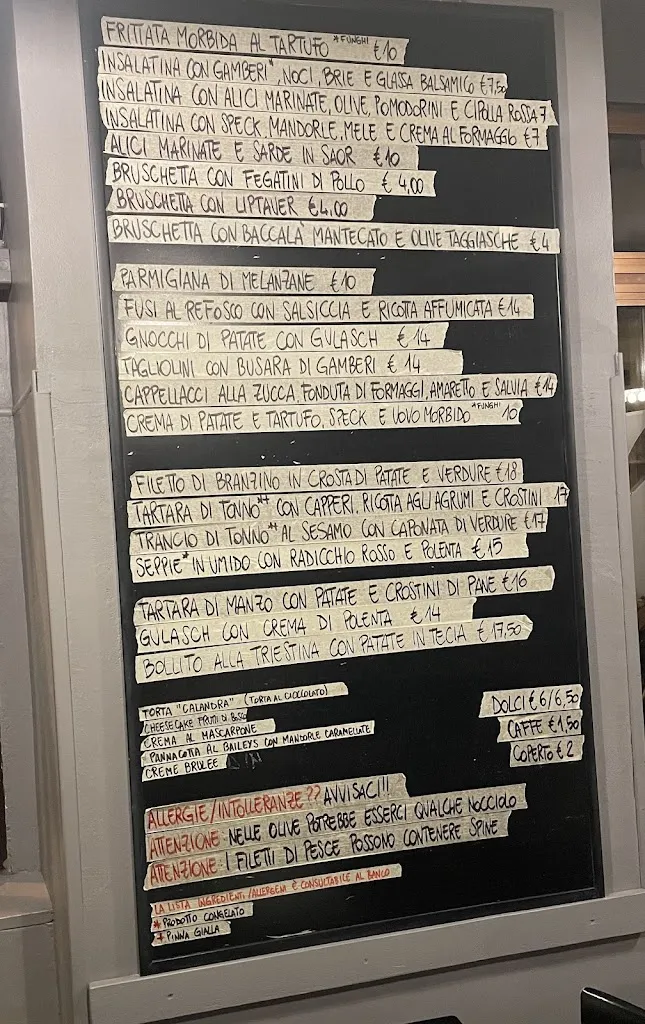 FRITTATA MORBIDA AL TARTUFO *FUNGHI €10
INSALATINA CON GAMBERI*, NOCI, BRIE E GLASSA BALSAMICO €7,50
INSALATINA CON ALICI MARINATE, OLIVE, POMODORINI E CIPOLLA ROSSA 7
INSALATINA CON SPECK, MANDORLE, MELE E CREMA AL FORMAGGIO €7
ALICI MARINATE E SARDE IN SAOR €10
BRUSCHETTA CON FEGATINI DI POLLO € 4,00
BRUSCHETTA CON LIPTAVER €4,00
BRUSCHETTA CON BACCALÀ MANTECATO E OLIVE TAGGIASCHE € 4
PARMIGIANA DI MELANZANE €10
FUSI AL REFOSCO CON SALSICCIA E RICOTTA AFFUMICATA €14
GNOCCHI DI PATATE CON GULASCH € 14
TAGLIOLINI CON BUSARA DI GAMBERI € 14
CAPPELLACCI ALLA ZUCCA, FONDUTA DI FORMAGGI, AMARETTO E SALVIA €14
CREMA DI PATATE E TARTUFO, SPECK E UOVO MORBIDO *FUNGHI 10
FILETTO DI BRANZINO IN CROSTA DI PATATE E VERDURE €18
TARTARA DI TONNO** CON CAPPERI, RICOTTA AGLI AGRUMI E CROSTINI 17
TRANCIO DI TONNO** AL SESAMO CON CAPONATA DI VERDURE €17
SEPPIE* IN UMIDO CON RADICCHIO ROSSO E POLENTA €15
TARTARA DI MANZO CON PATATE E CROSTINI DI PANE €16
GULASCH CON CREMA DI POLENTA €14
BOLLITO ALLA TRIESTINA CON PATATE IN TECIA € 17,50
TORTA "CALANDRA" (TORTA AL CIOCCOLATO)
CHEESECAKE FRUTTI DI BOSCO
CREMA AL MASCARPONE
PANNACOTTA AL BAILEYS CON MANDORLE CARAMELLATE
CREME BRULEE
DOLCI €6/6,50
CAFFE €1,50
COPERTO € 2
ALLERGIE/INTOLLERANZE?? AVVISACI!!!
ATTENZIONE: NELLE OLIVE POTREBBE ESSERCI QUALCHE NOCCIOLO
ATTENZIONE: I FILETTI DI PESCE POSSONO CONTENERE SPINE
LA LISTA INGREDIENTI/ALLERGENI È CONSULTABILE AL BANCO
* PRODOTTO CONGELATO
* PINNA GIALLA